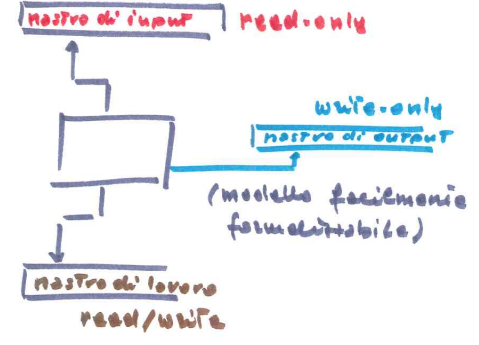 nastro di input
read-only
write-only
nastro di output
(modello facilmente
formalizzabile)
nastro di lavoro
read/write